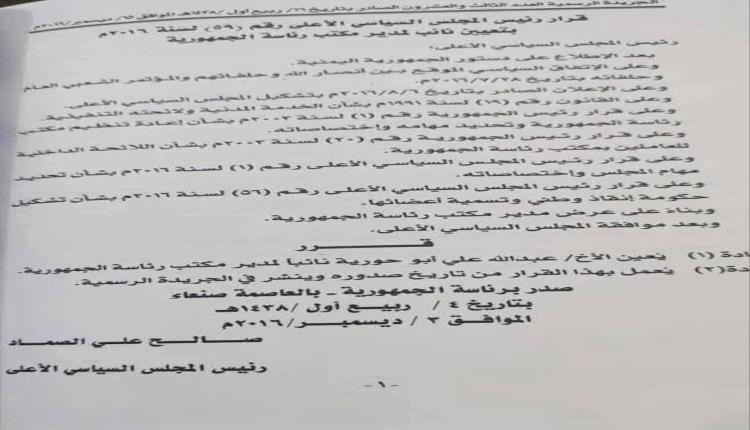 الجريدة الرسمية العدد الثالث والعشرون الصادر بتاريخ ١٦/ ربيع أول /١٤٣٨هـ الموافق ١٥/ ديسمبر/٢٠١٦م
قرار رئيس المجلس السياسي الأعلى رقم (٥٩) لسنة ٢٠١٦م
بتعيين نائب لمدير مكتب رئاسة الجمهورية
رئيس المجلس السياسي الأعلى:
بعد الإطلاع على دستور الجمهورية اليمنية.
وعلى الإتفاق السياسي الموقع بين انصار الله وحلفائهم والمؤتمر الشعبي العام
وحلفائه بتاريخ ٢٠١٦/٧/٢٨م.
وعلى الإعلان الصادر بتاريخ ٢٠١٦/٨/٦م بتشكيل المجلس السياسي الأعلى.
وعلى القانون رقم (١٩) لسنة ١٩٩١م بشأن الخدمة المدنية ولائحته التنفيذية.
وعلى قرار رئيس الجمهورية رقم (١) لسنة ٢٠٠٣م بشأن إعادة تنظيم مكتب
رئاسة الجمهورية وتحديد مهامه وإختصاصاته.
وعلى قرار رئيس الجمهورية رقم (٢٠) لسنة ٢٠٠٣م بشأن اللائحة الداخلية
للعاملين بمكتب رئاسة الجمهورية.
وعلى قرار رئيس المجلس السياسي الأعلى رقم (١) لسنة ٢٠١٦م بشأن تحديد
مهام المجلس وإختصاصاته.
وعلى قرار رئيس المجلس السياسي الأعلى رقم (٥٦) لسنة ٢٠١٦م بشأن تشكيل
حكومة إنقاذ وطني وتسمية أعضائها.
وبناءً على عرض مدير مكتب رئاسة الجمهورية.
وبعد موافقة المجلس السياسي الأعلى.
قـــــــرر
ادة (١) يُعين الأخ/ عبدالله علي أبو حورية نائباً لمدير مكتب رئاسة الجمهورية.
دة(٢) يُعمل بهذا القرار من تاريخ صدوره وينشر في الجريدة الرسمية.
صدر برئاسة الجمهورية - بالعاصمة صنعاء
بتاريخ ٤ / ربيع أول /١٤٣٨هـ
الموافق ٣ / ديسمبر/٢٠١٦م
صـالـح عـلـي الصمـاد
رئيس المجلس السياسي الأعلى
-١-